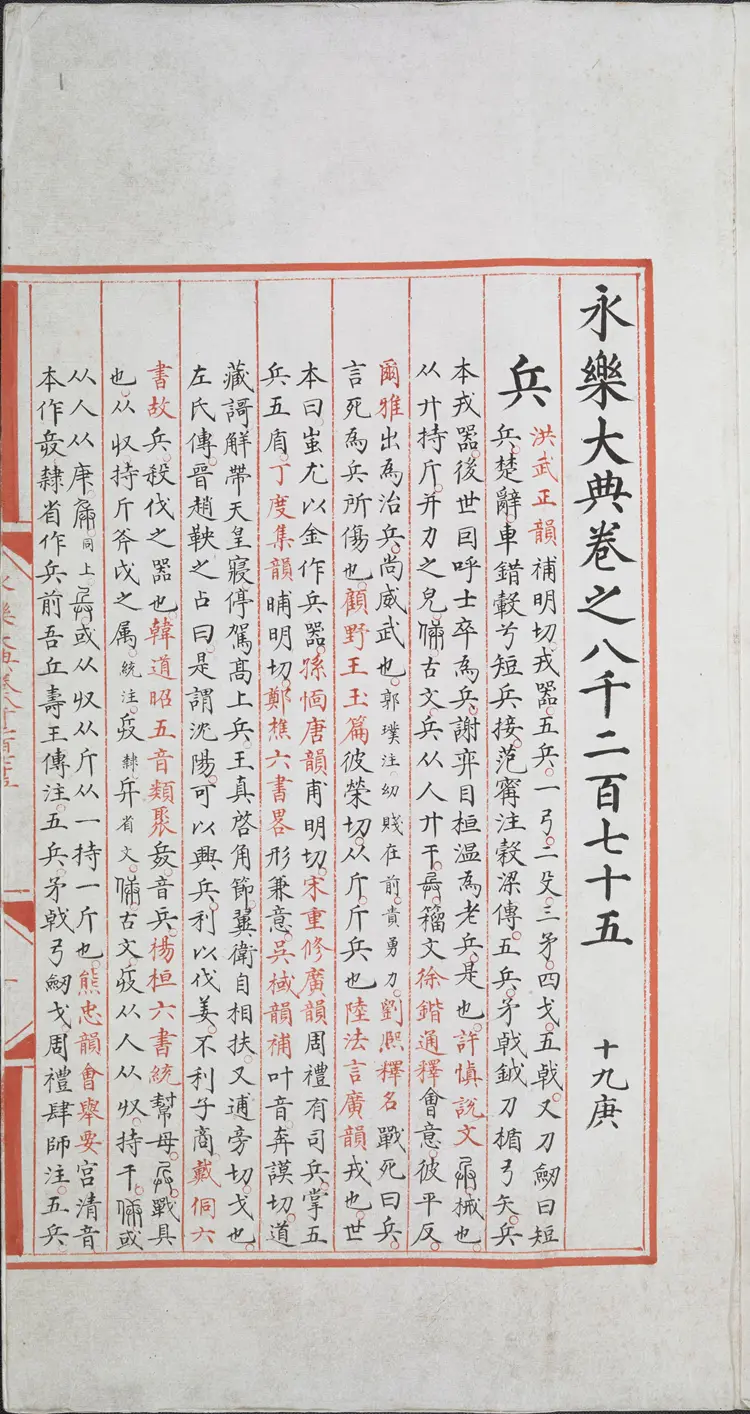 永樂大典卷之八千二百七十五 十九庚
兵
洪武正韻補明切。戎器。五兵。一弓。二殳。三矛。四戈。五戟。又刀劒曰短
兵。楚辭車錯轂兮短兵接。范甯注穀梁傳。五兵。矛戟鉞刀楯弓矢。兵
本戎器。後世因呼士卒為兵。謝弈目桓温為老兵。是也。許慎説文 械也。
从廾持斤。并力之皃。㒇古文。兵从人廾干。 籀文徐鍇通釋會意。彼平反。
爾雅出為治兵。尚威武也。郭璞注幼賤在前。貴勇力。劉熈釋名戰死曰兵。
言死為兵所傷也。顧野王玉篇彼榮切。从斤。斤兵也陸法言廣韻戎也。世
本曰。蚩尤以金作兵器。孫愐唐韻甫明切。宋重修廣韻周禮有司兵。掌五
兵五盾。丁度集韻晡明切。鄭樵六書畧形兼意。吳棫韻補叶音。奔謨切。道
藏謌解帶天皇寢停駕髙上兵。王真啓角節。翼衛自相扶。又逋旁切。戈也。
左氏傳。晉趙鞅之占曰。是謂沈陽。可以興兵。利以伐姜。不利子商。戴侗六
書故兵。殺伐之器也韓道昭五音類聚 音兵。楊桓六書統幫母。 戰具
也。从収持斤斧戉之属。統注。 隸 省文。㒇古文。 从人从収。持干。㒇或
从人从庚。 同上。 或从収从斤从一持一斤也。熊忠韻會舉要宮清音
本作 隸省作兵前吾丘壽王傳注。五兵。矛戟弓劒戈周禮肆師注。五兵。
永樂大典卷八千二百七十五
一